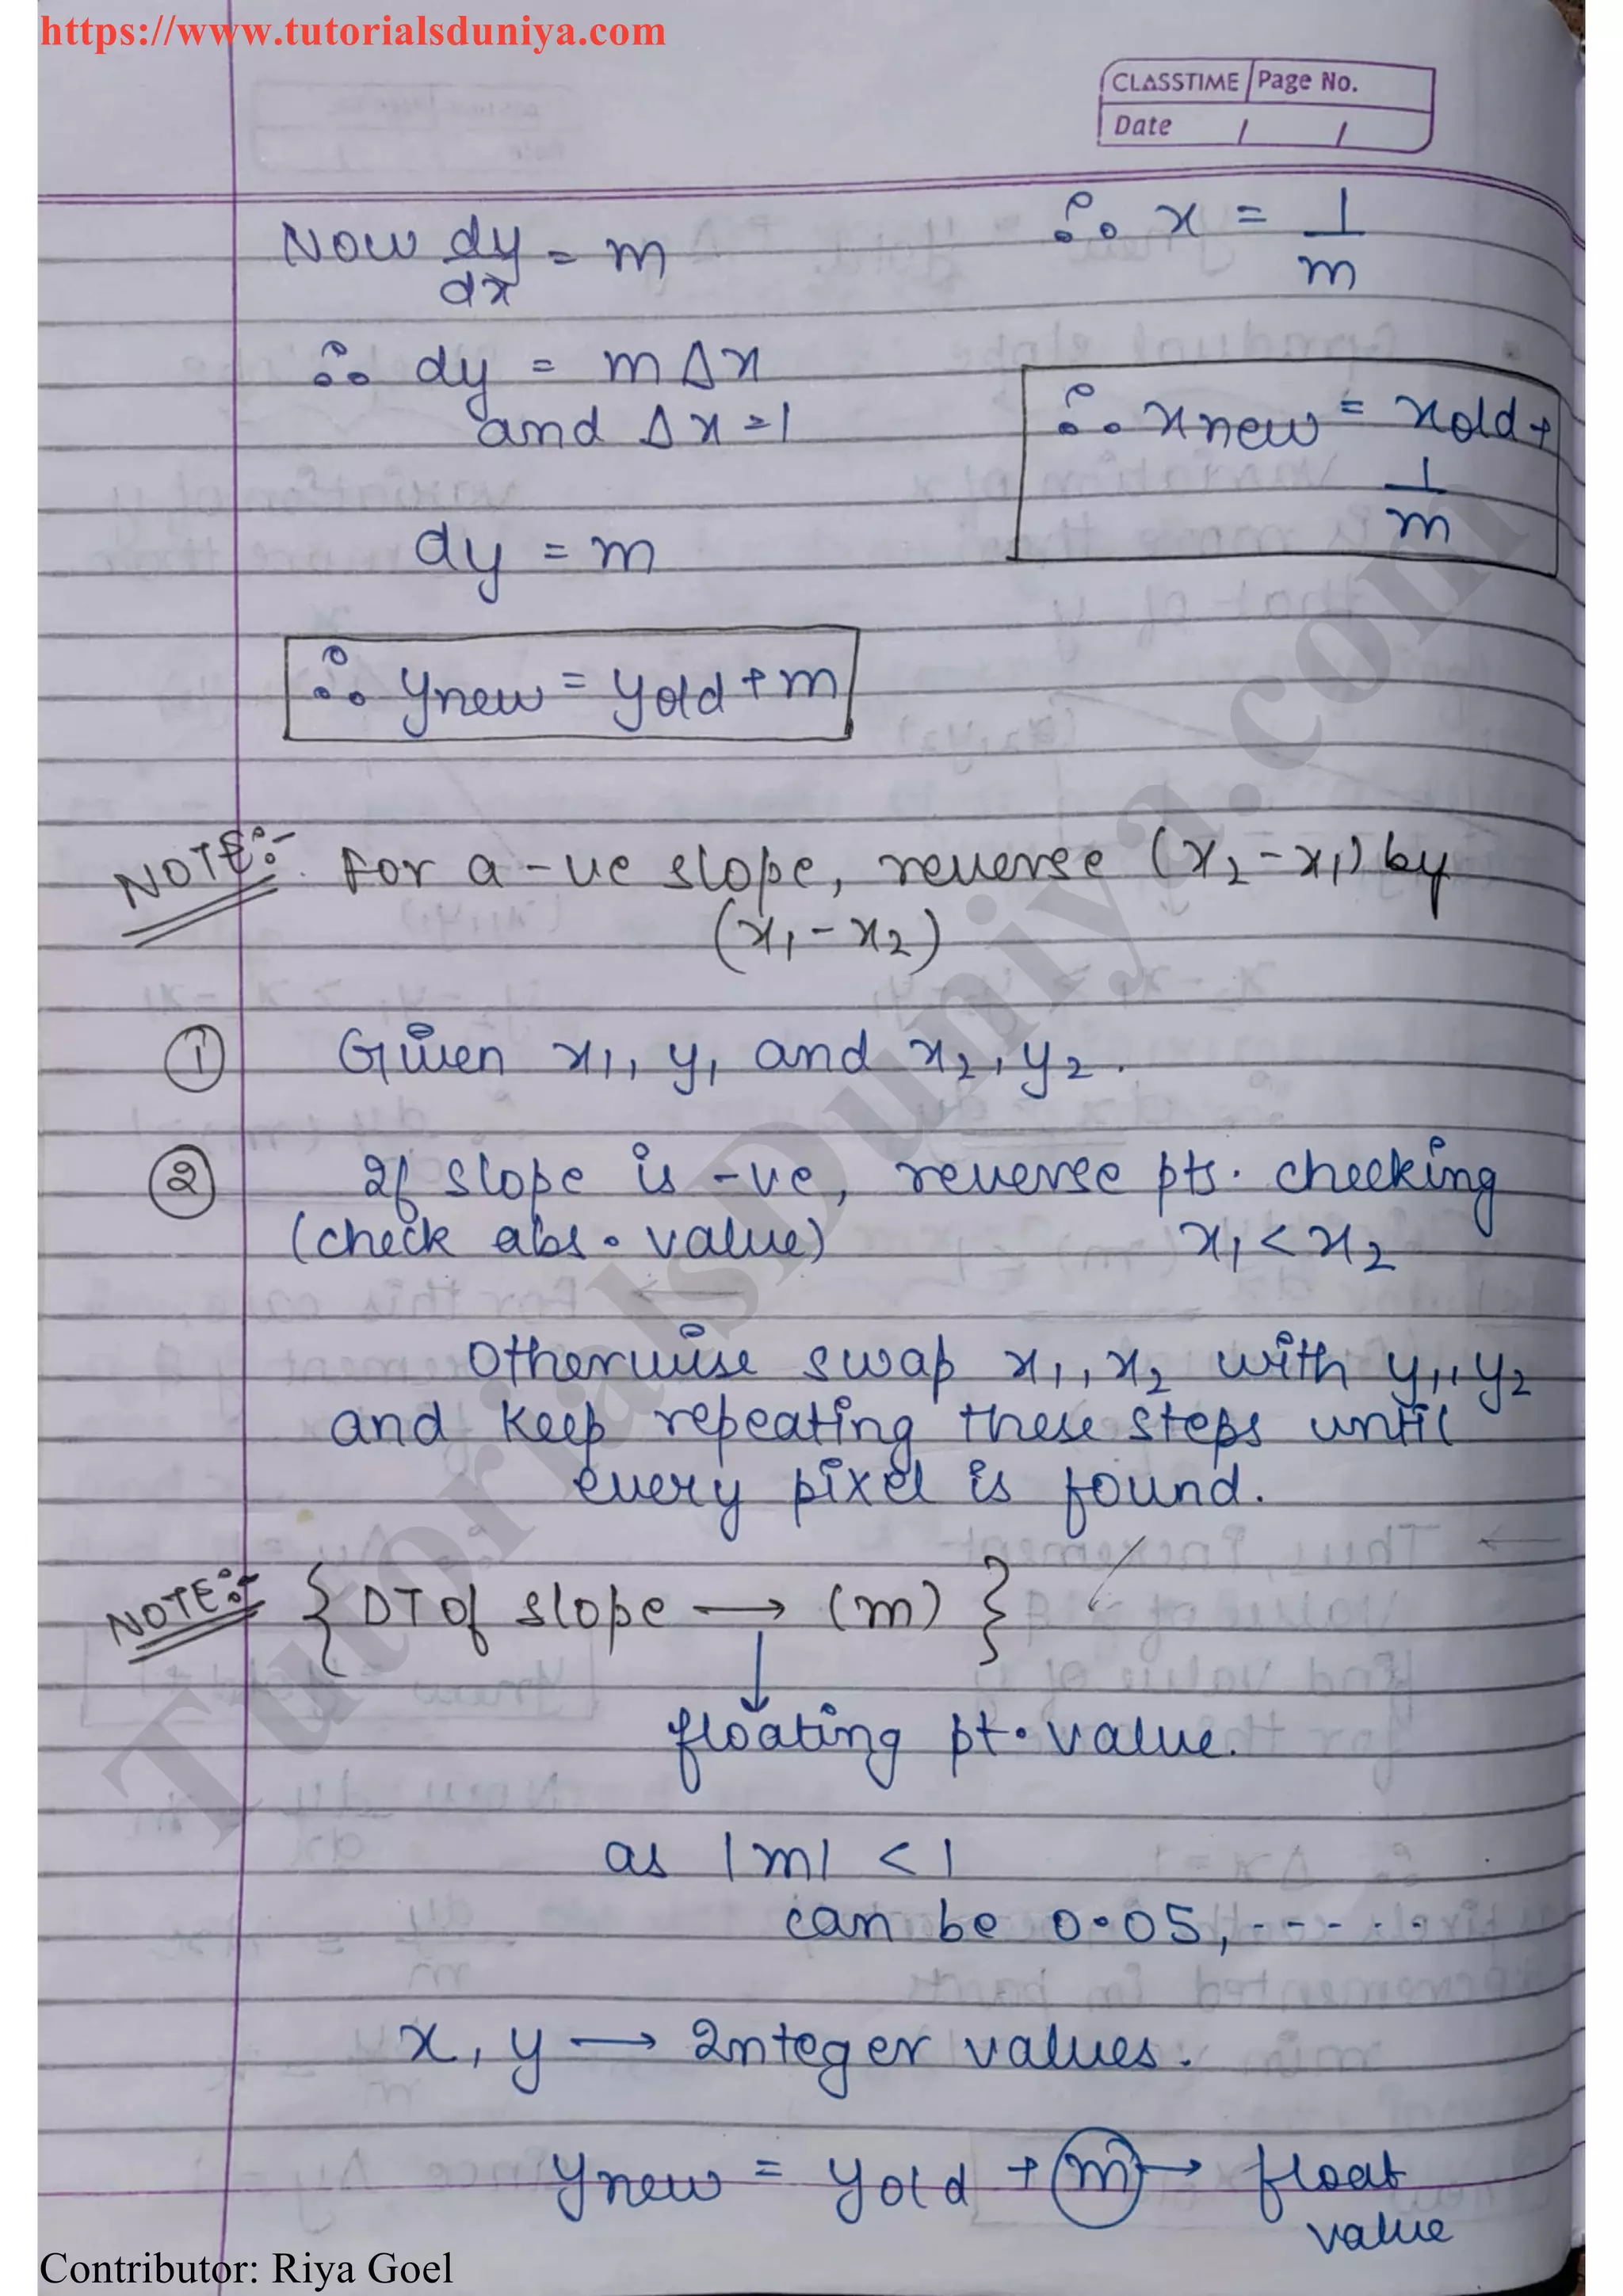 https://www.tutorialsduniya.com
CLASSTIME Page No.
Date / /
Now dy/dx = m
∴ dy = m Δx
and Δx = 1
dy = m
∴ ynew = yold + m
∴ x = 1/m
∴ xnew = xold +
1/m
NOTE:- For a -ve slope, reverse (x2 - x1) by
(x1 - x2)
① Given x1, y1 and x2, y2.
② If slope is -ve, reverse pts. checking
(check abs. value) x1 < x2
Otherwise swap x1, x2 with y1, y2
and keep repeating these steps until
every pixel is found.
NOTE:- { DT of slope → (m) }
↓
floating pt. value.
as |m| < 1
can be 0.05, - - - - -
x, y → Integer values.
ynew = yold + m → float
value
TutorialsDuniya.com
Contributor: Riya Goel